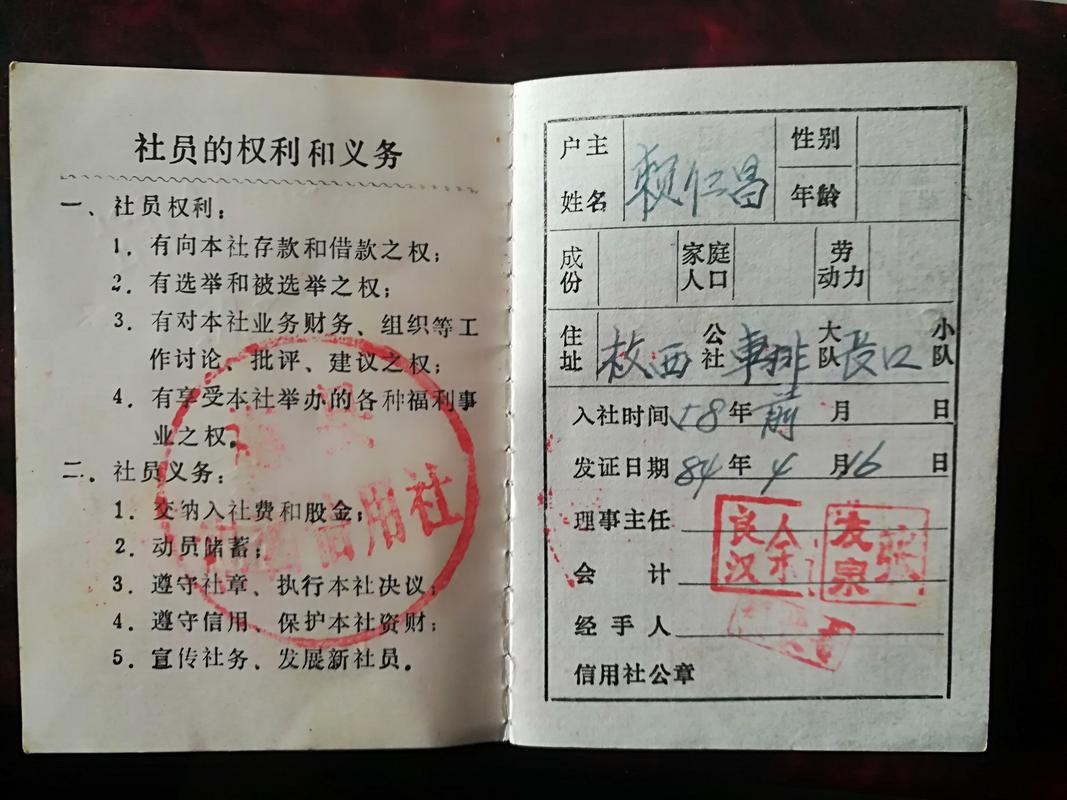 社员的权利和义务
一、社员权利：
1．有向本社存款和借款之权；
2．有选举和被选举之权；
3．有对本社业务财务、组织等工
作讨论、批评、建议之权；
4．有享受本社举办的各种福利事
业之权。
二．社员义务：
1．交纳入社费和股金；
2．动员储蓄；
3．遵守社章、执行本社决议；
4．遵守信用、保护本社资财；
5．宣传社务、发展新社员。
信用社
户主姓名 赖仁昌 性别
年龄
成份 家庭人口 劳动力
住址 西 公社 车排 大队 长口 小队
入社时间 58年前 月 日
发证日期 84年4月16日
理事主任
会计
经手人
信用社公章
余良汉
张发泉